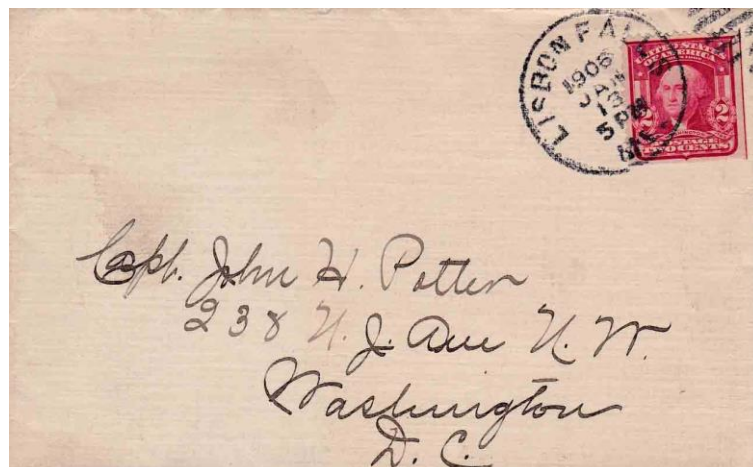 LISBON FALLS
1906
5 PM
ME.
UNITED STATES
OF AMERICA
2 2
POSTAGE
TWO CENTS
Capt. John H. Potter
238 N. J. Ave N. W.
Washington
D. C.